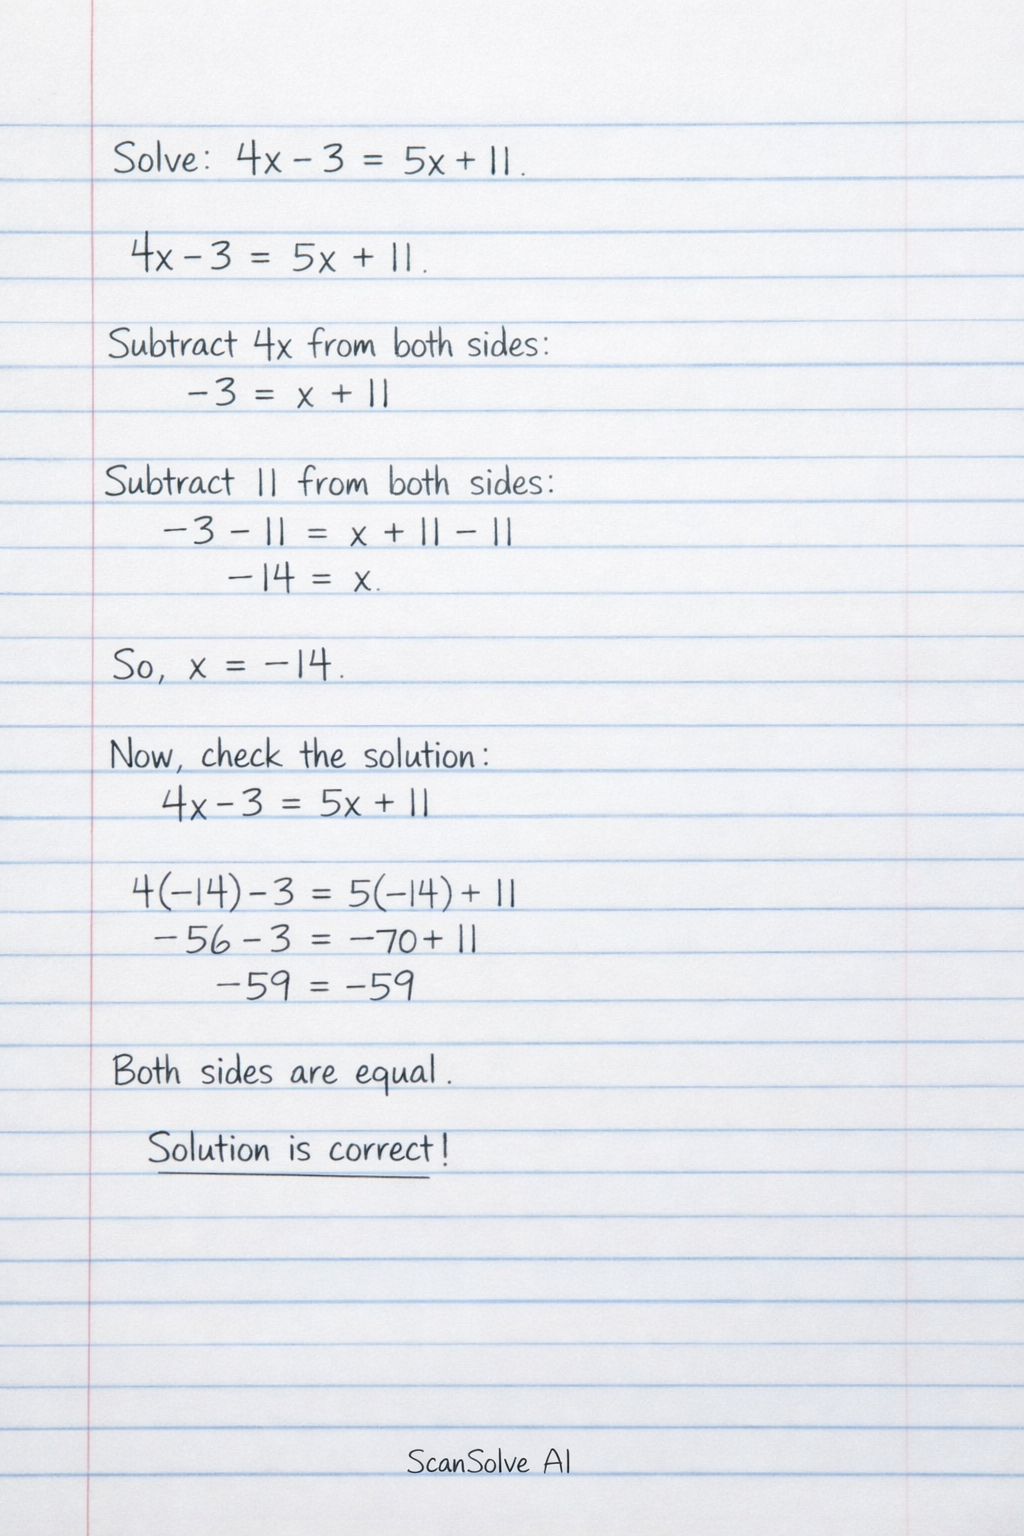 Solve: 4x - 3 = 5x + 11.
4x - 3 = 5x + 11.
Subtract 4x from both sides:
-3 = x + 11
Subtract 11 from both sides:
-3 - 11 = x + 11 - 11
-14 = x.
So, x = -14.
Now, check the solution:
4x - 3 = 5x + 11
4(-14) - 3 = 5(-14) + 11
-56 - 3 = -70 + 11
-59 = -59
Both sides are equal.
Solution is correct!
ScanSolve AI